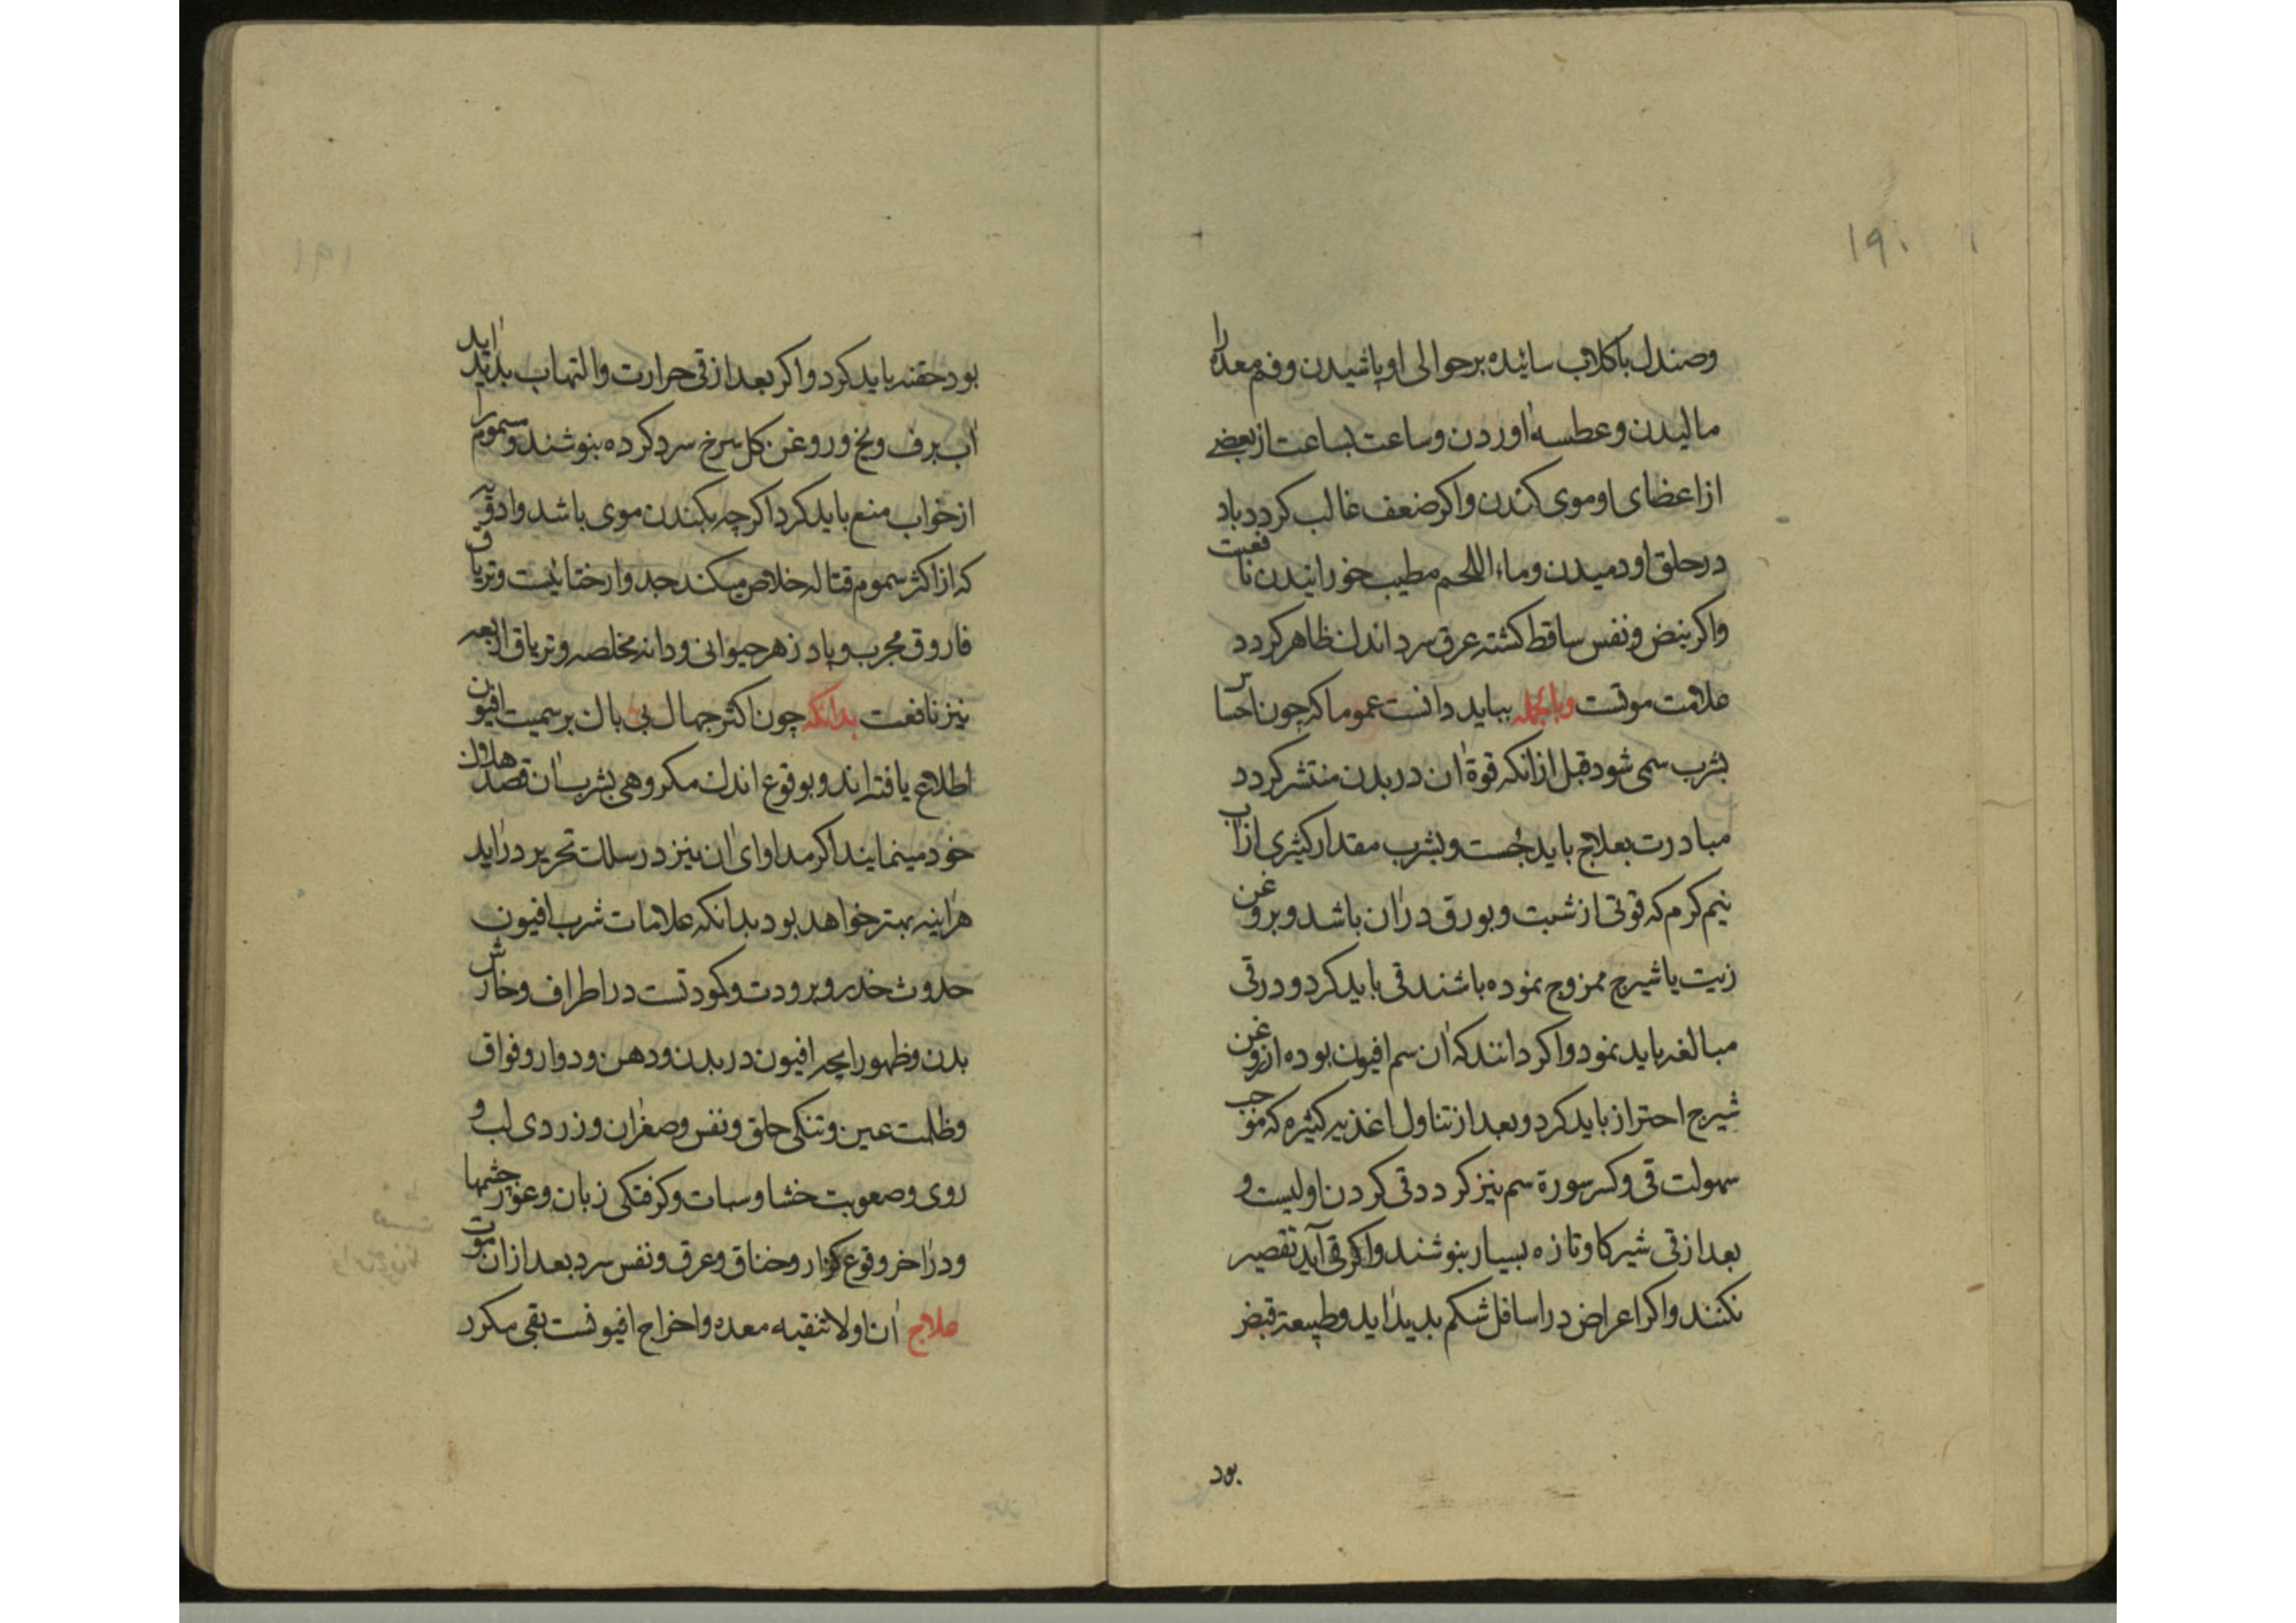 ۱۹۰
وصندل باکلاب سائیده برحوالی او پاشیدن وفم معده را
مالیدن وعطسه آوردن وساعت بساعت از بعضی
از اعضای او موی کندن واکر ضعف غالب کردد باد
در حلق او دمیدن وماء اللحم مطیب خورانیدن نافعست
واکر نبض ونفس ساقط کشته عرق سرد اندک ظاهر کردد
علامت موتست وبالجمله بباید دانست عموما که چون احساس
بشرب سمی شود قبل از انکه قوة آن در بدن منتشر کردد
مبادرت بعلاج باید جست وبشرب مقدار کثیری از آب
نیم کرم که قوتی از شبت وبورق در آن باشد وبروغن
زیت یا شیرج ممزوج نموده باشند قی باید کرد ودر قی
مبالغه باید نمود واکر دانند که آن سم افیون بوده از روغن
شیرج احتراز باید کرد وبعد از تناول اغذیه کثیره که موجب
سهولت قی وکسر سورة سم نیز کردد قی کردن اولیست و
بعد از قی شیر کاو تازه بسیار بنوشند واکر قی آید تقصیر
نکنند واکر اعراض در اسافل شکم بدید آید وطبیعة قبض
بود
۱۹۱
بود حقنه باید کرد واکر بعد از قی حرارت والتهاب بدید آید
آب برف ویخ وروغن کل سرخ سرد کرده بنوشند ومسموم را
از خواب منع باید کرد اکرچه بکندن موی باشد وادویه
که از اکثر سموم قتاله خلاص میکند جدوار ختائیست وتریاق
فاروق مجرب وپادزهر حیوانی ودانه مخلصه وتریاق اربعه
نیز نافعست بدانکه چون اکثر جهال بی باک بر سمیت افیون
اطلاع یافته اند وبوقوع اندک مکروهی بشرب آن قصد هلاک
خود مینمایند اکر مداوای آن نیز در سلک تحریر در آید
هر آینه بهتر خواهد بود بدانکه علامات شرب افیون
حدوث خدر وبرودت وکمودتست در اطراف وخارش
بدن وظهور رایحه افیون در بدن ودهن ودوار وفواق
وظلمت عین وتنکی حلق ونفس وصغر آن وزردی لب و
روی وصعوبت خشا وسبات وکرفتکی زبان وغور چشمها
ودر آخر وقوع کزاز وخناق وعرق ونفس سرد بعد از آن موت
علاج آن اولا تنقیه معده واخراج افیونست بقی مکرر